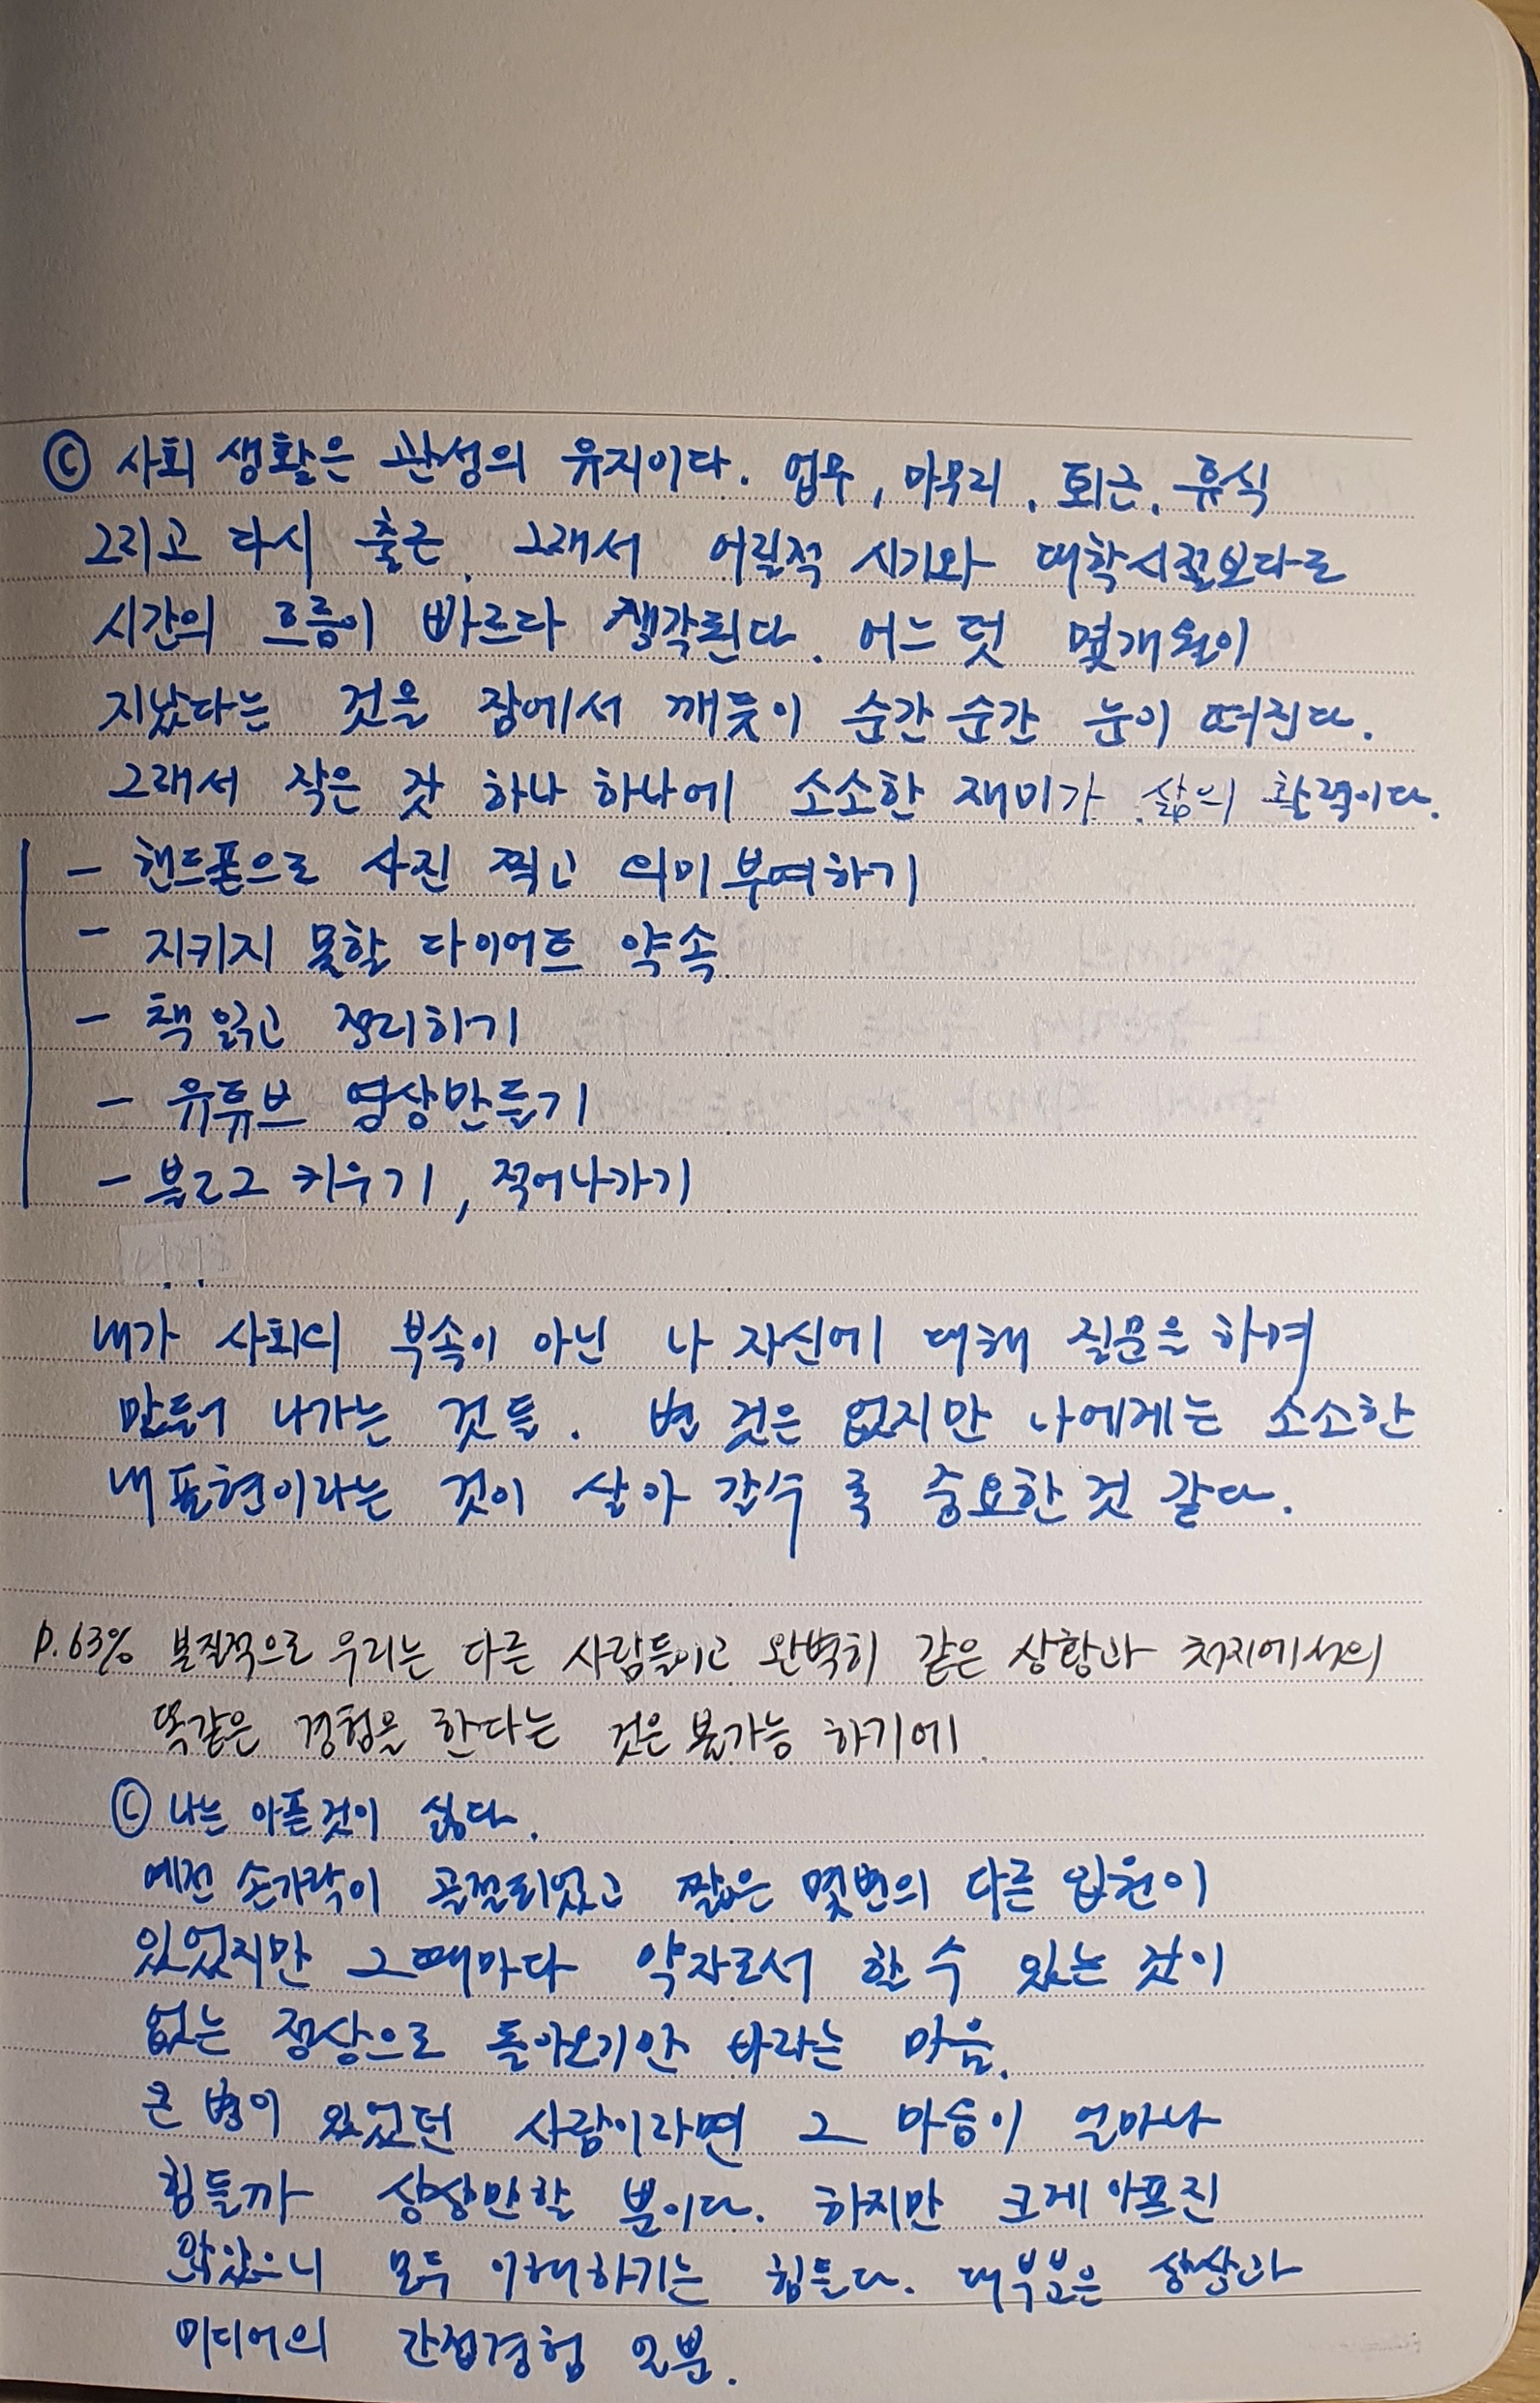 ⓒ 사회 생활은 관성의 유지이다. 업무, 마무리, 퇴근, 휴식
그리고 다시 출근. 그래서 어릴적 시기와 대학시절보다로
시간의 흐름이 빠르다 생각된다. 어느덧 몇개월이
지났다는 것을 잠에서 깨듯이 순간순간 눈이 떠진다.
그래서 작은 것 하나 하나에 소소한 재미가 삶의 활력이다.
- 핸드폰으로 사진 찍고 의미부여하기
- 지키지 못할 다이어트 약속
- 책 읽고 정리하기
- 유튜브 영상만들기
- 블로그 키우기, 적어나가기
내가 사회의 부속이 아닌 나 자신에 대해 질문을 하며
만들어 나가는 것들. 별 것은 없지만 나에게는 소소한
내 표현이라는 것이 살아 갈수록 중요한 것 같다.
P.63% 본질적으로 우리는 다른 사람들이고 완벽히 같은 상황과 처지에서의
똑같은 경험을 한다는 것은 불가능 하기에.
ⓒ 나는 아픈것이 싫다.
예전 손가락이 골절되었고 짧은 몇번의 다른 입원이
있었지만 그때마다 약자로서 할 수 있는 것이
없는 정상으로 돌아오기만 바라는 마음.
큰 병이 있었던 사람이라면 그 마음이 얼마나
힘들까 상상만할 뿐이다. 하지만 크게 아프진
않았으니 모두 이해하기는 힘든다. 대부분은 상상과
미디어의 간접경험 일뿐.